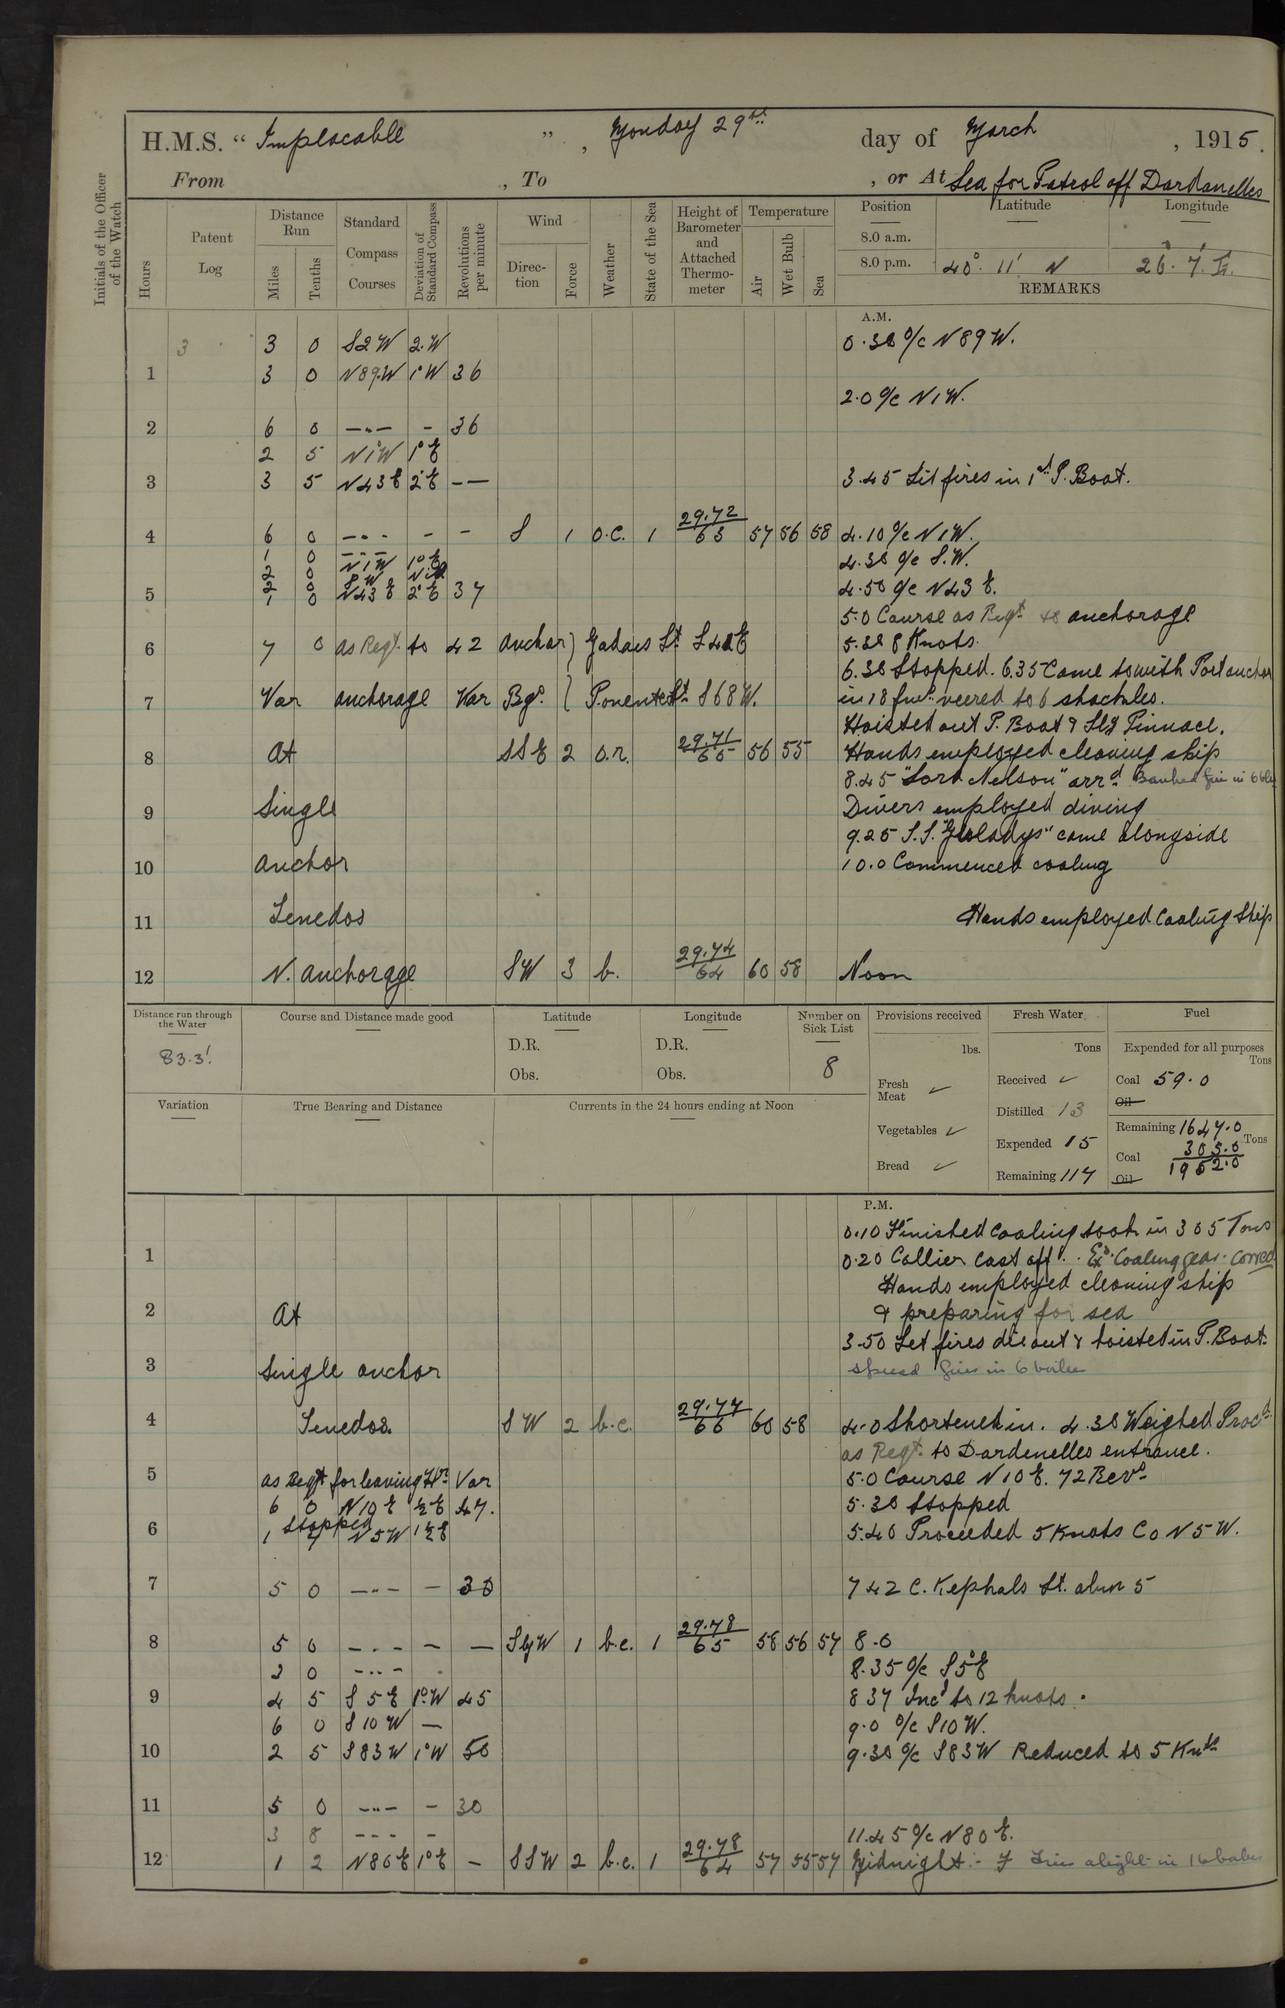 H.M.S. “ Implacable ” , Monday 29th day of March , 1915.
From , To , or At Sea for Patrol off Dardanelles
Initials of the Officer of the Watch
Hours
Patent Log
Distance Run
Miles
Tenths
Standard Compass Courses
Deviation of Standard Compass
Revolutions per minute
Wind
Direction
Force
Weather
State of the Sea
Height of Barometer and Attached Thermometer
Temperature
Air
Wet Bulb
Sea
Position Latitude Longitude
8.0 a.m.
8.0 p.m. 40° 11' N 26° 7' E.
REMARKS
A.M.
3 3 0 S2W 2.W 0.30 a/c N89W.
1 3 0 N89.W 1°W 36
2.0 a/c N1W.
2 6 0 –..– - 36
2 5 N1W 1°E
3 3 5 N43E 2°E -- 3.45 Lit fires in 1st P. Boat.
4 6 0 –..– - - S 1 O.C. 1 29.72 63 57 56 58 4.10 a/c N1W.
1 0 –..– 4.30 a/c S.W.
2 0 N1W 1°E
2 0 SW Nil
5 1 0 N43E 2°E 37 4.50 a/c N43E.
5.0 Course as Reqt. to anchorage
6 7 0 as Reqt. to 42 anchor } Gadaro Lt. S40E 5.30 8 Knots.
6.30 Stopped. 6.35 Came to with Port anchor
7 Var anchorage Var Bgs. { Ponente Lt. S68W. in 18 fms. veered to 6 shackles.
Hoisted out P. Boat & Slg Pinnace.
8 At SSE 2 o.r. 29.71 65 56 55 Hands employed cleaning ship
8.45 "Lord Nelson" arrd. Banked fires in 6 blrs
9 Single Divers employed diving
9.25 S.S. "Gladys" came alongside
10 anchor 10.0 Commenced coaling
11 Tenedos Hands employed Coaling Ship
12 N. anchorage SW 3 b. 29.74 64 60 58 Noon
Distance run through the Water
83.3'.
Course and Distance made good
Latitude
D.R.
Obs.
Longitude
D.R.
Obs.
Number on Sick List
8
Provisions received
lbs.
Fresh Meat ✓
Vegetables ✓
Bread ✓
Fresh Water
Tons
Received ✓
Distilled 13
Expended 15
Remaining 117
Fuel
Expended for all purposes
Tons
Coal 59.0
Oil
Remaining 1647.0
Tons
Coal 305.0
Oil 1952.0
Variation
True Bearing and Distance
Currents in the 24 hours ending at Noon
P.M.
0.10 Finished coaling took in 305 Tons
1 0.20 Collier cast off. Exd. Coaling gear. Correct
Hands employed cleaning ship
2 At & preparing for sea
3.50 Let fires die out & hoisted in P. Boat.
3 Single anchor Spread fires in 6 boilers
4 Tenedos. SW 2 b.c. 29.77 66 60 58 4.0 Shortened in. 4.30 Weighed Procd.
as Reqt. to Dardenelles entrance.
5 as Reqt for leaving Hr. Var 5.0 Course N10E. 72 Revs.
6 0 N10E ½E 47. 5.30 Stopped
Stopped
6 1 7 N5W 1½E 5.40 Proceeded 5 Knots Co N5W.
7 5 0 –..– – 30 7 42 C. Kephalo Lt. abm 5
8 5 0 –..– – – SbyW 1 b.c. 1 29.78 65 58 56 57 8.0
2 0 –..– 8.35 a/c S5°E
9 4 5 S5E 1°W 45 8 37 Incd to 12 knots.
6 0 S10W – 9.0 a/c S10W.
10 2 5 S83W 1°W 50 9.30 a/c S83W Reduced to 5 Knts
11 5 0 –..– – 30
3 8 –..– – 11.45 a/c N80E.
12 1 2 N80E 1°E – SSW 2 b.c. 1 29.78 64 57 55 57 Midnight:- Fires alight in 16 boilers